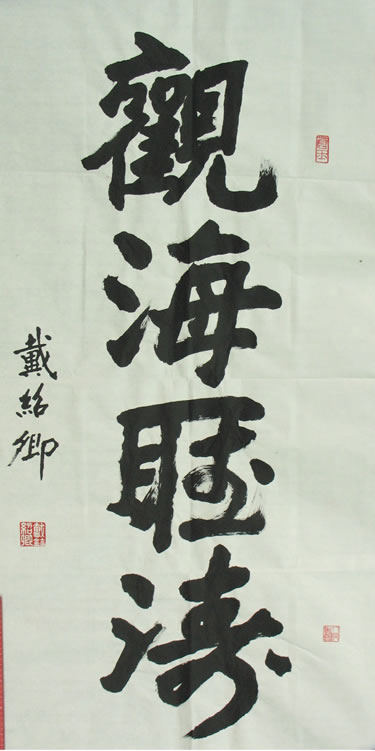 觀海聽涛
戴紹卿